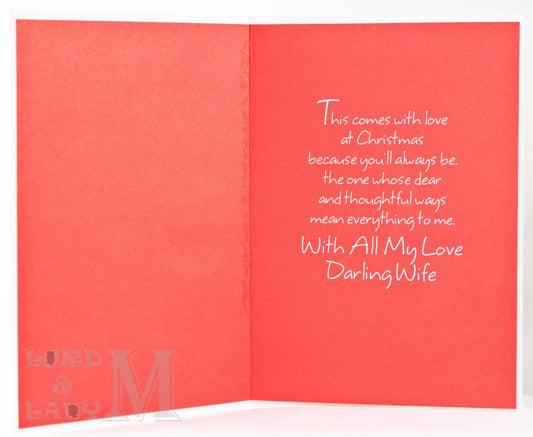 This comes with love
at Christmas
because you'll always be,
the one whose dear
and thoughtful ways
mean everything to me.
With All My Love
Darling Wife
LORD
&
LADY M